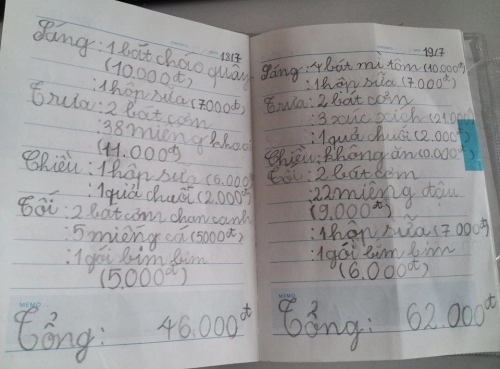 18/7
Sáng: 1 bát cháo quẩy
(10.000đ)
: 1 hộp sữa (7000đ)
Trưa: 2 bát cơm
: 38 miếng khoai
(11.000đ)
Chiều: 1 hộp sữa (6.000đ)
: 1 quả chuối (2.000đ)
Tối: 2 bát cơm chan canh
: 5 miếng cá (5000đ)
: 1 gói bim bim
(5.000đ)
MEMO
Tổng: 46.000đ
19/7
Sáng: 4 bát mì tôm (10.000đ)
: 1 hộp sữa (7.000đ)
Trưa: 2 bát cơm
: 3 xúc xích (21.000
: 1 quả chuối (2.000đ)
Chiều: không ăn (0.000đ)
Tối: 2 bát cơm
: 22 miếng đậu
(9.000đ)
: 1 hộp sữa (7000đ)
: 1 gói bim bim
(6.000đ)
MEMO
Tổng: 62.000đ